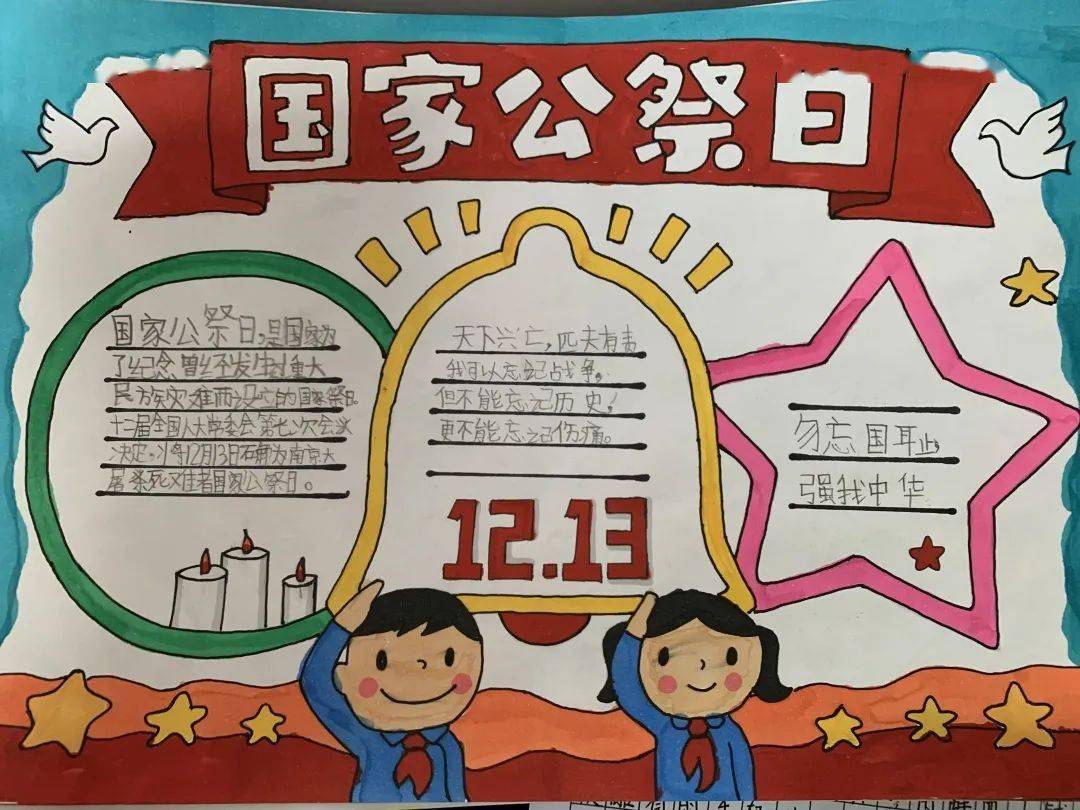 国家公祭日
国家公祭日,是国家为
了纪念曾经发生过重大
民族灾难而设立的国家祭日。
十二届全国人大常委会第七次会议
决定,将12月13日 为南京大
屠杀死难者国家公祭日。
天下兴亡,匹夫有责
我可以忘记战争,
但不能忘记历史!
更不能忘记伤痛。
12.13
勿忘国耻,
强我中华